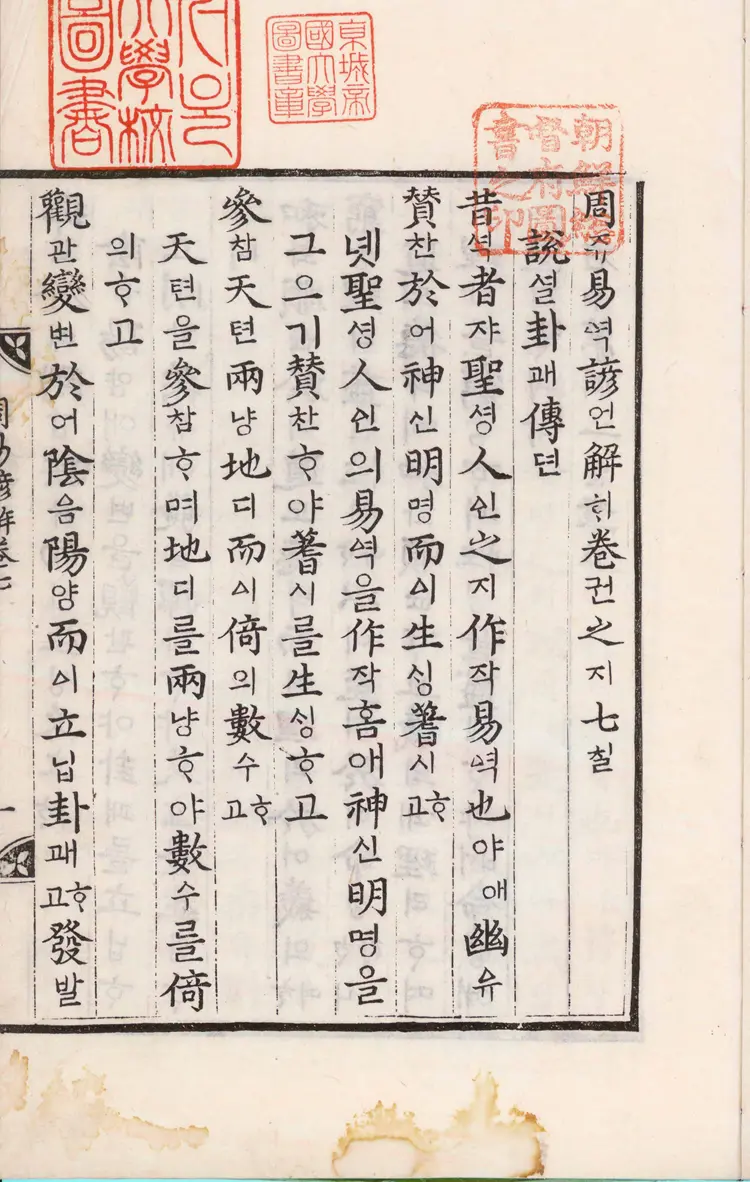 서울
大學校
圖書
京城帝
國大學
圖書章
朝鮮總
督府圖
書之印
周쥬易역諺언解ᄒᆡ卷권之지七칠
說셜卦괘傳뎐
昔셕者쟈聖셩人ᅀᅵᆫ之지作작易역也야애幽유
贊찬於어神신明명而ᅀᅵ生ᄉᆡᆼ蓍시ᄒᆞ고
녯聖셩人ᅀᅵᆫ의易역을作작홈애神신明명을
그으기贊찬ᄒᆞ야蓍시를生ᄉᆡᆼᄒᆞ고
參참天텬兩냥地디而ᅀᅵ倚의數수ᄒᆞ고
天텬을參참ᄒᆞ며地디를兩냥ᄒᆞ야數수를倚
의ᄒᆞ고
觀관變변於어陰음陽양而ᅀᅵ立닙卦괘ᄒᆞ고發발
周易諺解卷七
一